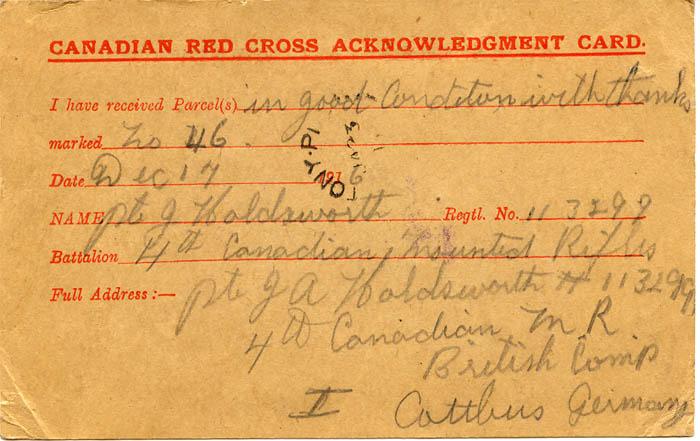 CANADIAN RED CROSS ACKNOWLEDGMENT CARD.
I have received Parcel(s) in good Condition with thanks
marked No 46.
Date Dec 17 1916
NAME pte J Holdsworth Regtl. No. 113299
Battalion 4th Canadian Mounted Rifles
Full Address :— pte J A Holdsworth # 113299
4th Canadian M R
British Comp
II Cottbus Germany